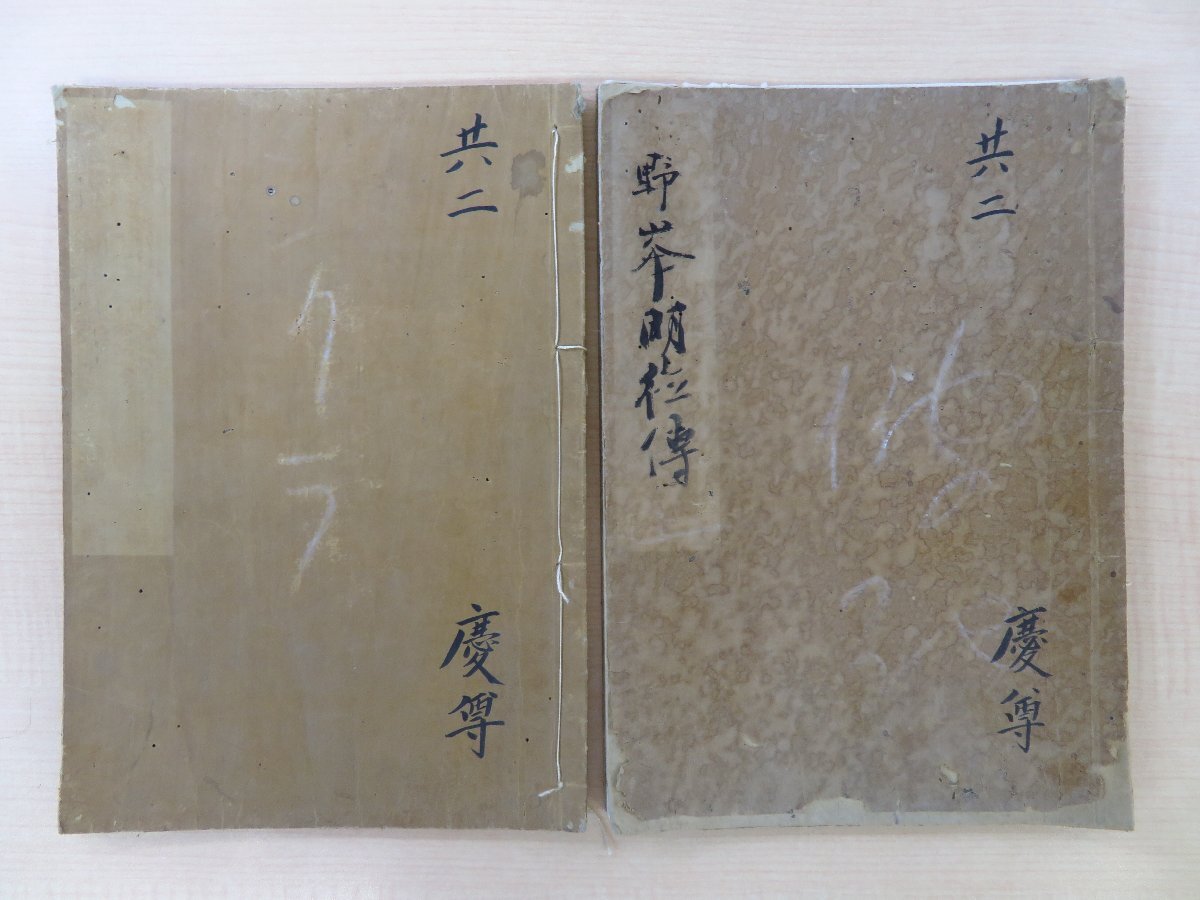 共二
慶尊
野峯明徳傳
共二
慶尊